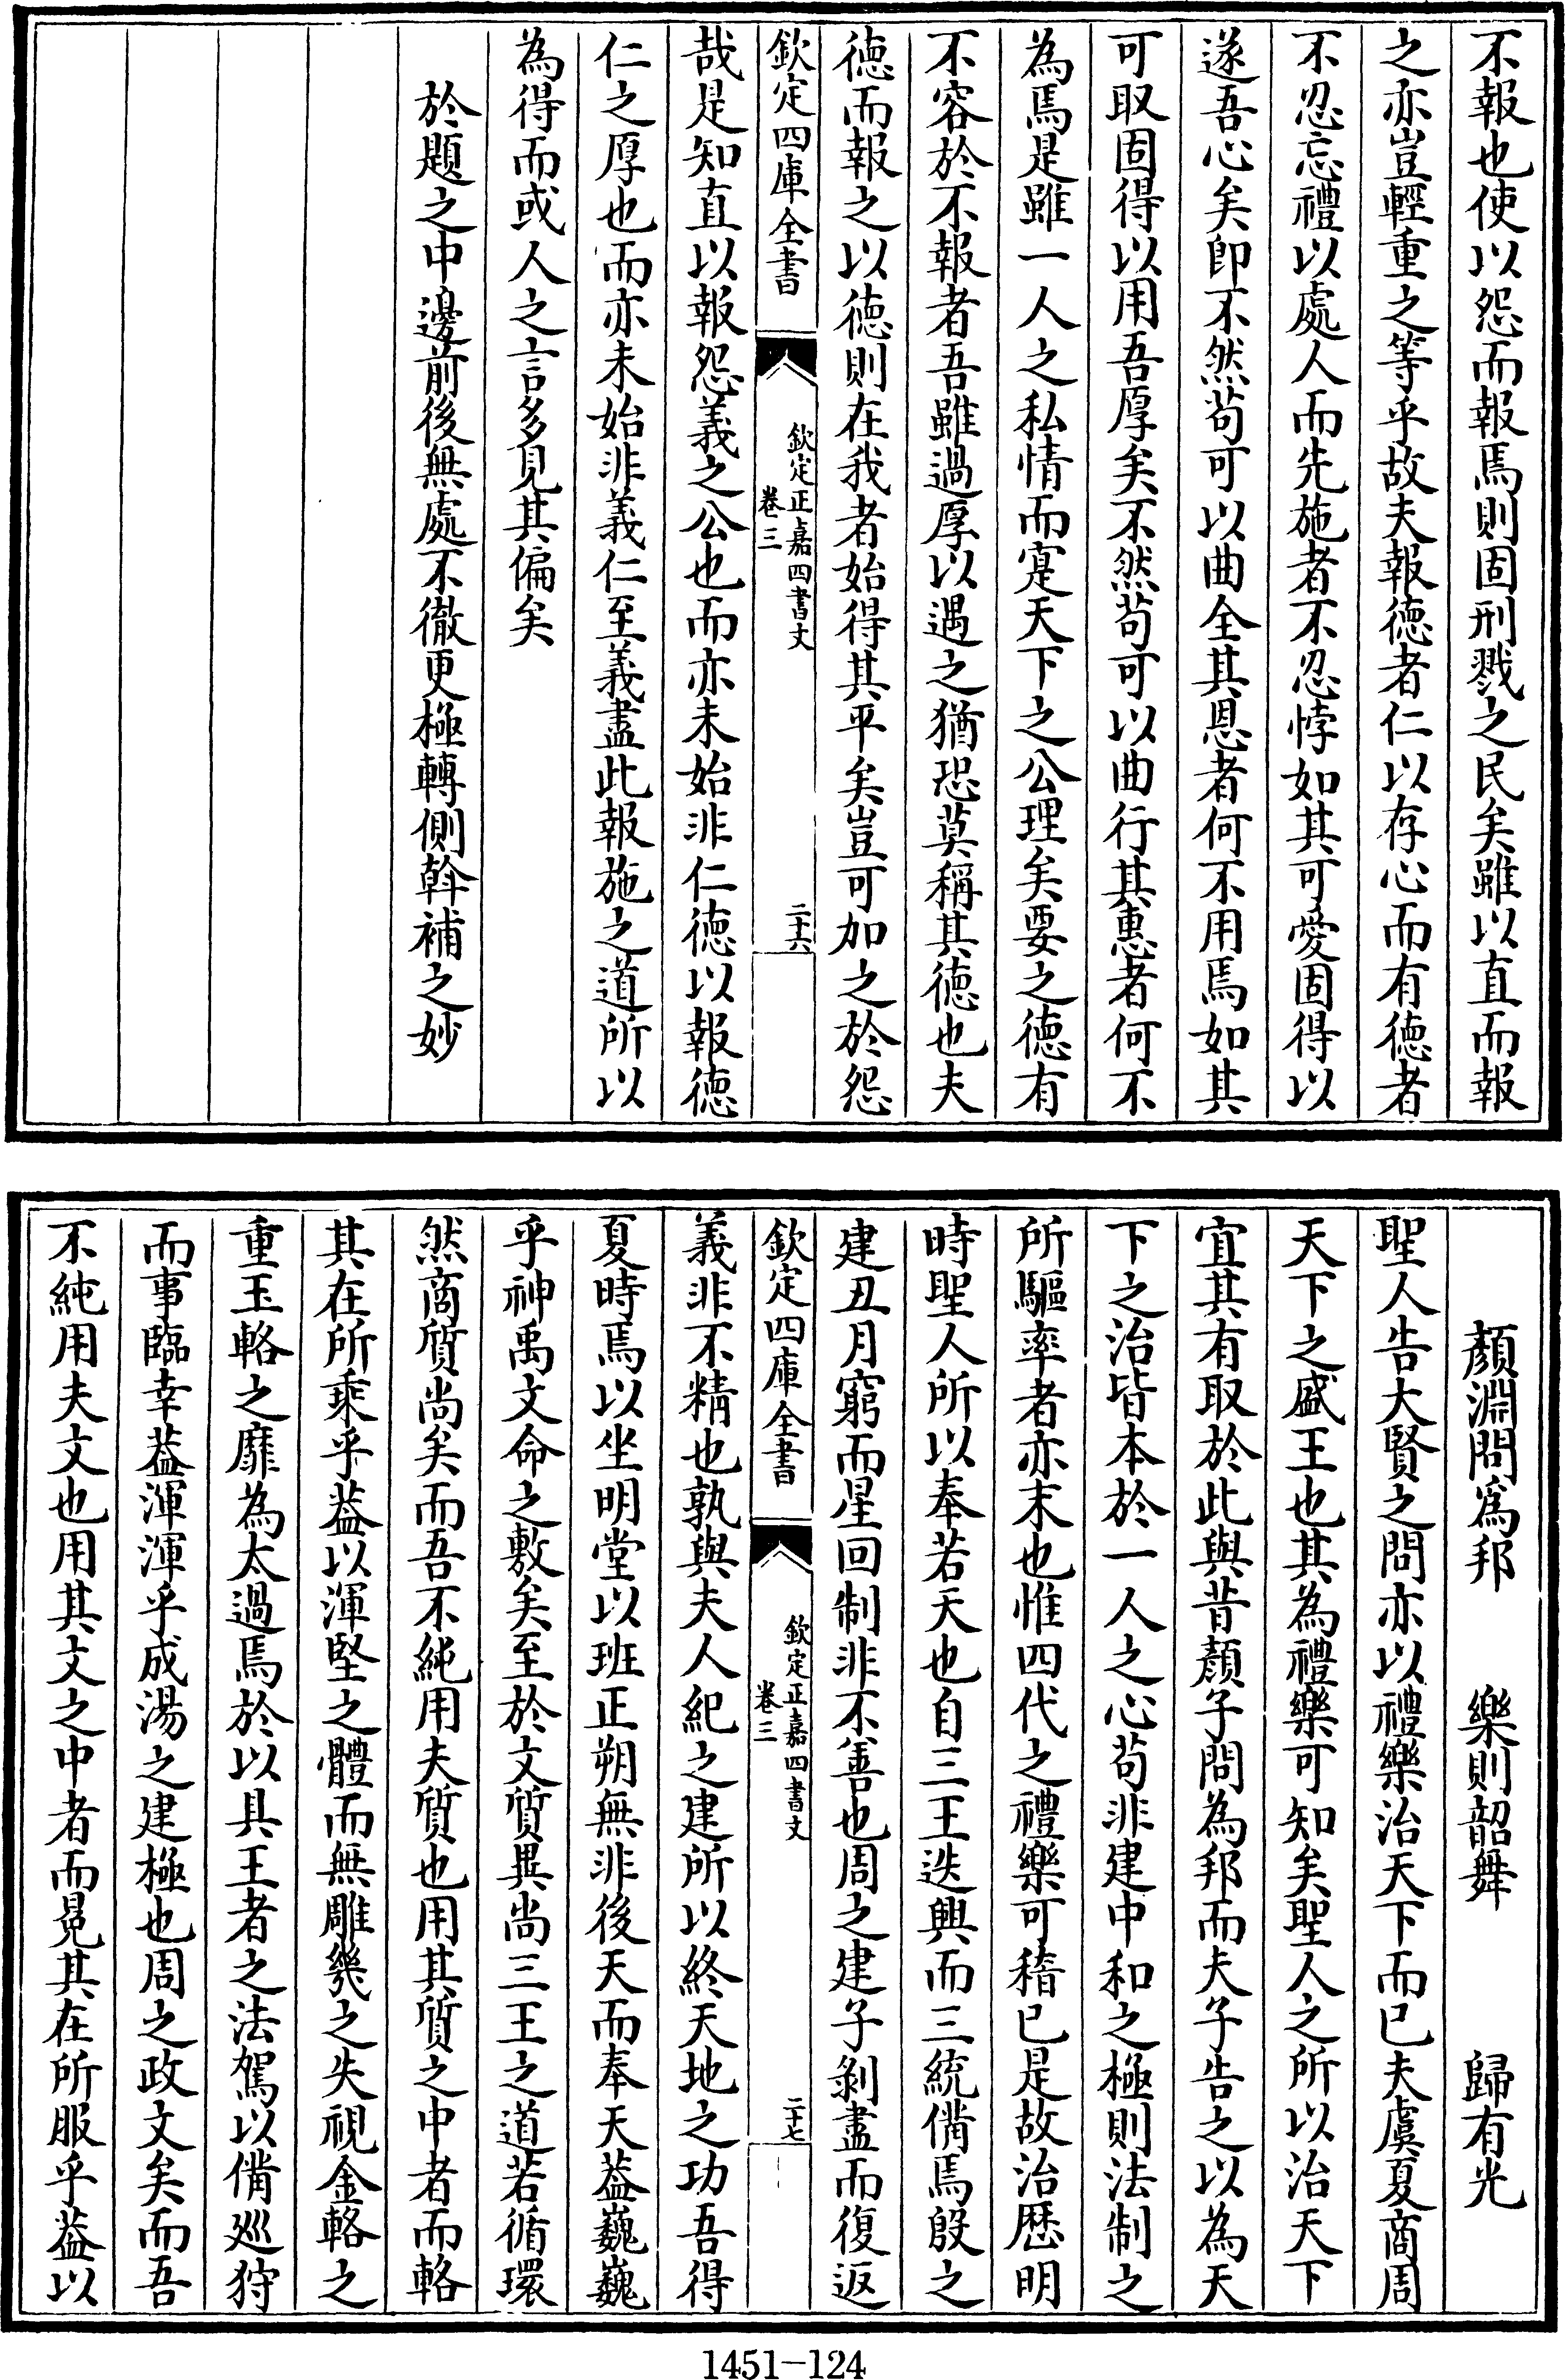 不報也使以怨而報焉則固刑戮之民矣雖以直而報
之亦豈輕重之等乎故夫報德者仁以存心而有德者
不忍忘禮以處人而先施者不忍悖如其可愛固得以
遂吾心矣即不然苟可以曲全其恩者何不用焉如其
可取固得以用吾厚矣不然苟可以曲行其惠者何不
為焉是雖一人之私情而寔天下之公理矣要之德有
不容於不報者吾雖過厚以遇之猶恐莫稱其德也夫
德而報之以德則在我者始得其平矣豈可加之於怨
欽定四庫全書
欽定正嘉四書文
卷三
二十六
哉是知直以報怨義之公也而亦未始非仁德以報德
仁之厚也而亦未始非義仁至義盡此報施之道所以
為得而或人之言多見其偏矣
於題之中邊前後無處不徹更極轉側斡補之妙
顏淵問為邦 樂則韶舞 歸有光
聖人告大賢之問亦以禮樂治天下而已夫虞夏商周
天下之盛王也其為禮樂可知矣聖人之所以治天下
宜其有取於此與昔顏子問為邦而夫子告之以為天
下之治皆本於一人之心苟非建中和之極則法制之
所驅率者亦末也惟四代之禮樂可稽已是故治歴明
時聖人所以奉若天也自三王迭興而三統備焉殷之
建丑月窮而星回制非不善也周之建子剝盡而復返
欽定四庫全書
欽定正嘉四書文
卷三
二十七
義非不精也孰與夫人紀之建所以終天地之功吾得
夏時焉以坐明堂以班正朔無非後天而奉天葢巍巍
乎神禹文命之敷矣至於文質異尚三王之道若循環
然商質尚矣而吾不純用夫質也用其質之中者而輅
其在所乘乎葢以渾堅之體而無雕幾之失視金輅之
重玉輅之靡為太過焉於以具王者之法駕以備巡狩
而事臨幸葢渾渾乎成湯之建極也周之政文矣而吾
不純用夫文也用其文之中者而冕其在所服乎葢以
1451-124